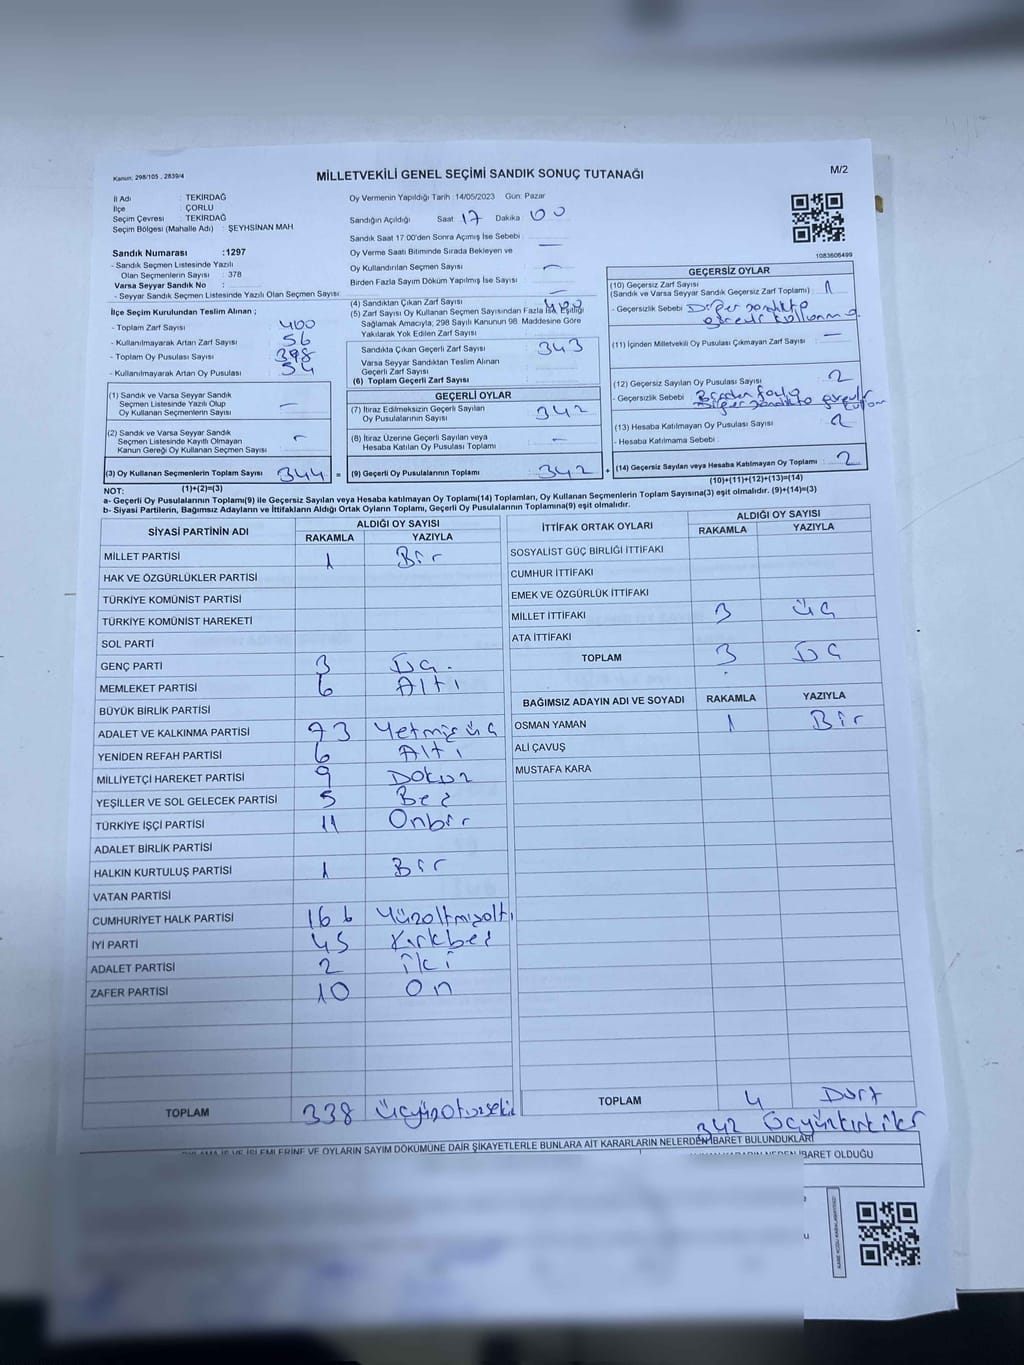 Kanun: 298/105 , 2839/4
MİLLETVEKİLİ GENEL SEÇİMİ SANDIK SONUÇ TUTANAĞI
M/2
İl Adı : TEKİRDAĞ
İlçe : ÇORLU
Seçim Çevresi : TEKİRDAĞ
Seçim Bölgesi (Mahalle Adı) : ŞEYHSİNAN MAH
Sandık Numarası :1297
- Sandık Seçmen Listesinde Yazılı
Olan Seçmenlerin Sayısı : 378
Varsa Seyyar Sandık No :
- Seyyar Sandık Seçmen Listesinde Yazılı Olan Seçmen Sayısı:
İlçe Seçim Kurulundan Teslim Alınan ;
- Toplam Zarf Sayısı : 400
- Kullanılmayarak Artan Zarf Sayısı : 56
- Toplam Oy Pusulası Sayısı : 398
- Kullanılmayarak Artan Oy Pusulası : 54
(1) Sandık ve Varsa Seyyar Sandık
Seçmen Listesinde Yazılı Olup
Oy Kullanan Seçmenlerin Sayısı : —
(2) Sandık ve Varsa Seyyar Sandık
Seçmen Listesinde Kayıtlı Olmayan
Kanun Gereği Oy Kullanan Seçmen Sayısı : -
(3) Oy Kullanan Seçmenlerin Toplam Sayısı : 344 =
(1)+(2)=(3)
Oy Vermenin Yapıldığı Tarih : 14/05/2023 Gün: Pazar
Sandığın Açıldığı Saat 17 Dakika 00
Sandık Saat 17.00'den Sonra Açımış İse Sebebi : —
Oy Verme Saati Bitiminde Sırada Bekleyen ve
Oy Kullandırılan Seçmen Sayısı —
Birden Fazla Sayım Döküm Yapılmış İse Sayısı : —
(4) Sandıktan Çıkan Zarf Sayısı
(5) Zarf Sayısı Oy Kullanan Seçmen Sayısından Fazla İse, Eşitliği
Sağlamak Amacıyla; 298 Sayılı Kanunun 98. Maddesine Göre
Yakılarak Yok Edilen Zarf Sayısı :
Sandıkta Çıkan Geçerli Zarf Sayısı 343
Varsa Seyyar Sandıktan Teslim Alınan
Geçerli Zarf Sayısı
(6) Toplam Geçerli Zarf Sayısı
GEÇERLİ OYLAR
(7) İtiraz Edilmeksizin Geçerli Sayılan
Oy Pusulalarının Sayısı : 342
(8) İtiraz Üzerine Geçerli Sayılan veya
Hesaba Katılan Oy Pusulası Toplamı : —
(9) Geçerli Oy Pusulalarının Toplamı : 342 +
1083606499
GEÇERSİZ OYLAR
(10) Geçersiz Zarf Sayısı
(Sandık ve Varsa Seyyar Sandık Geçersiz Zarf Toplamı) : 1
- Geçersizlik Sebebi : Diğer
(11) İçinden Milletvekili Oy Pusulası Çıkmayan Zarf Sayısı : —
(12) Geçersiz Sayılan Oy Pusulası Sayısı : 2
- Geçersizlik Sebebi : Birden fazla
Diğer
(13) Hesaba Katılmayan Oy Pusulası Sayısı : 2
- Hesaba Katılmama Sebebi :
(14) Geçersiz Sayılan veya Hesaba Katılmayan Oy Toplamı : 2
(10)+(11)+(12)+(13)=(14)
NOT:
a- Geçerli Oy Pusulalarının Toplamı(9) ile Geçersiz Sayılan veya Hesaba katılmayan Oy Toplamı(14) Toplamları, Oy Kullanan Seçmenlerin Toplam Sayısına(3) eşit olmalıdır. (9)+(14)=(3)
b- Siyasi Partilerin, Bağımsız Adayların ve İttifakların Aldığı Ortak Oyların Toplamı, Geçerli Oy Pusulalarının Toplamına(9) eşit olmalıdır.
SİYASİ PARTİNİN ADI ALDIĞI OY SAYISI
RAKAMLA YAZIYLA
MİLLET PARTİSİ 1 Bir
HAK VE ÖZGÜRLÜKLER PARTİSİ
TÜRKİYE KOMÜNİST PARTİSİ
TÜRKİYE KOMÜNİST HAREKETİ
SOL PARTİ
GENÇ PARTİ 3 Üç.
MEMLEKET PARTİSİ 6 Altı
BÜYÜK BİRLİK PARTİSİ
ADALET VE KALKINMA PARTİSİ 73 Yetmiş üç
YENİDEN REFAH PARTİSİ 6 Altı
MİLLİYETÇİ HAREKET PARTİSİ 9 Dokuz
YEŞİLLER VE SOL GELECEK PARTİSİ 5 Beş
TÜRKİYE İŞÇİ PARTİSİ 11 Onbir
ADALET BİRLİK PARTİSİ
HALKIN KURTULUŞ PARTİSİ 1 Bir
VATAN PARTİSİ
CUMHURİYET HALK PARTİSİ 166 Yüzaltmışaltı
İYİ PARTİ 45 Kırkbeş
ADALET PARTİSİ 2 İki
ZAFER PARTİSİ 10 On
TOPLAM 338 Üçyüzotuzsekiz
İTTİFAK ORTAK OYLARI ALDIĞI OY SAYISI
RAKAMLA YAZIYLA
SOSYALİST GÜÇ BİRLİĞİ İTTİFAKI
CUMHUR İTTİFAKI
EMEK VE ÖZGÜRLÜK İTTİFAKI
MİLLET İTTİFAKI 3 Üç
ATA İTTİFAKI
TOPLAM 3 Üç
BAĞIMSIZ ADAYIN ADI VE SOYADI RAKAMLA YAZIYLA
OSMAN YAMAN 1 Bir
ALİ ÇAVUŞ
MUSTAFA KARA
TOPLAM 4 Dört
342 Üçyüzkırkiki
İŞLEMLERİNE VE OYLARIN SAYIM DÖKÜMÜNE DAİR ŞİKAYETLERLE BUNLARA AİT KARARLARIN NELERDEN İBARET BULUNDUKLARI
İBARET OLDUĞU